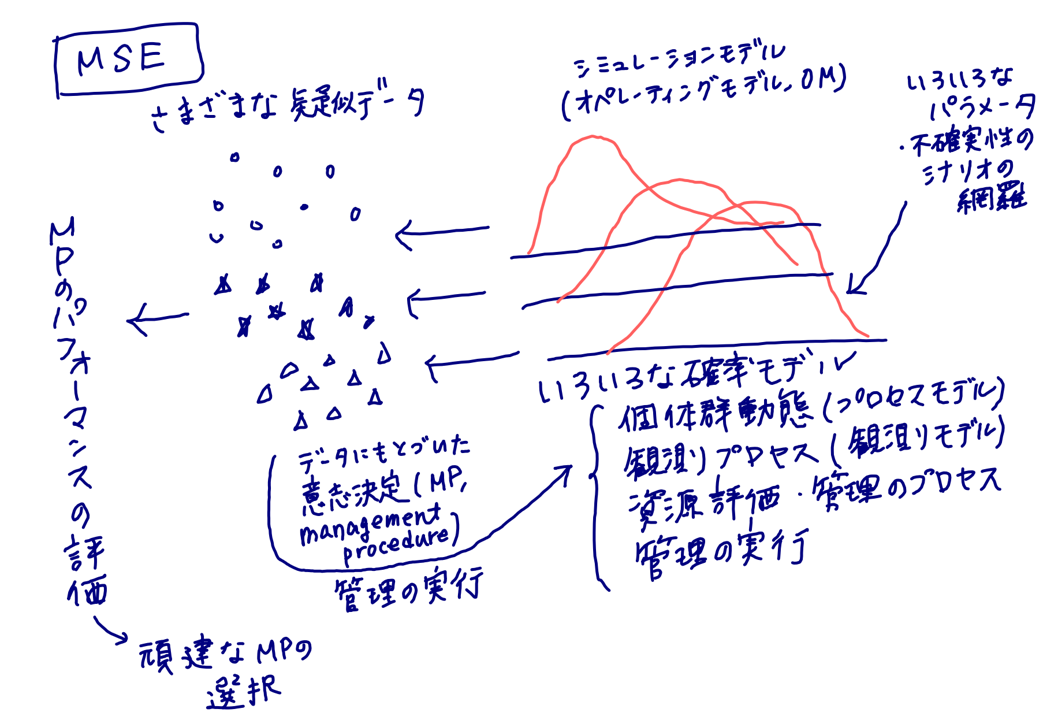 MSE
さまざまな疑似データ
シミュレーションモデル
(オペレーティングモデル, OM)
いろいろな
パラメータ
・不確実性の
シナリオの
網羅
MPのパフォーマンスの評価
いろいろな確率モデル
個体群動態(プロセスモデル)
観測りプロセス(観測りモデル)
資源評価・管理のプロセス
管理の実行
データにもとづいた
意志決定(MP,
management
procedure)
管理の実行
頑健なMPの
選択